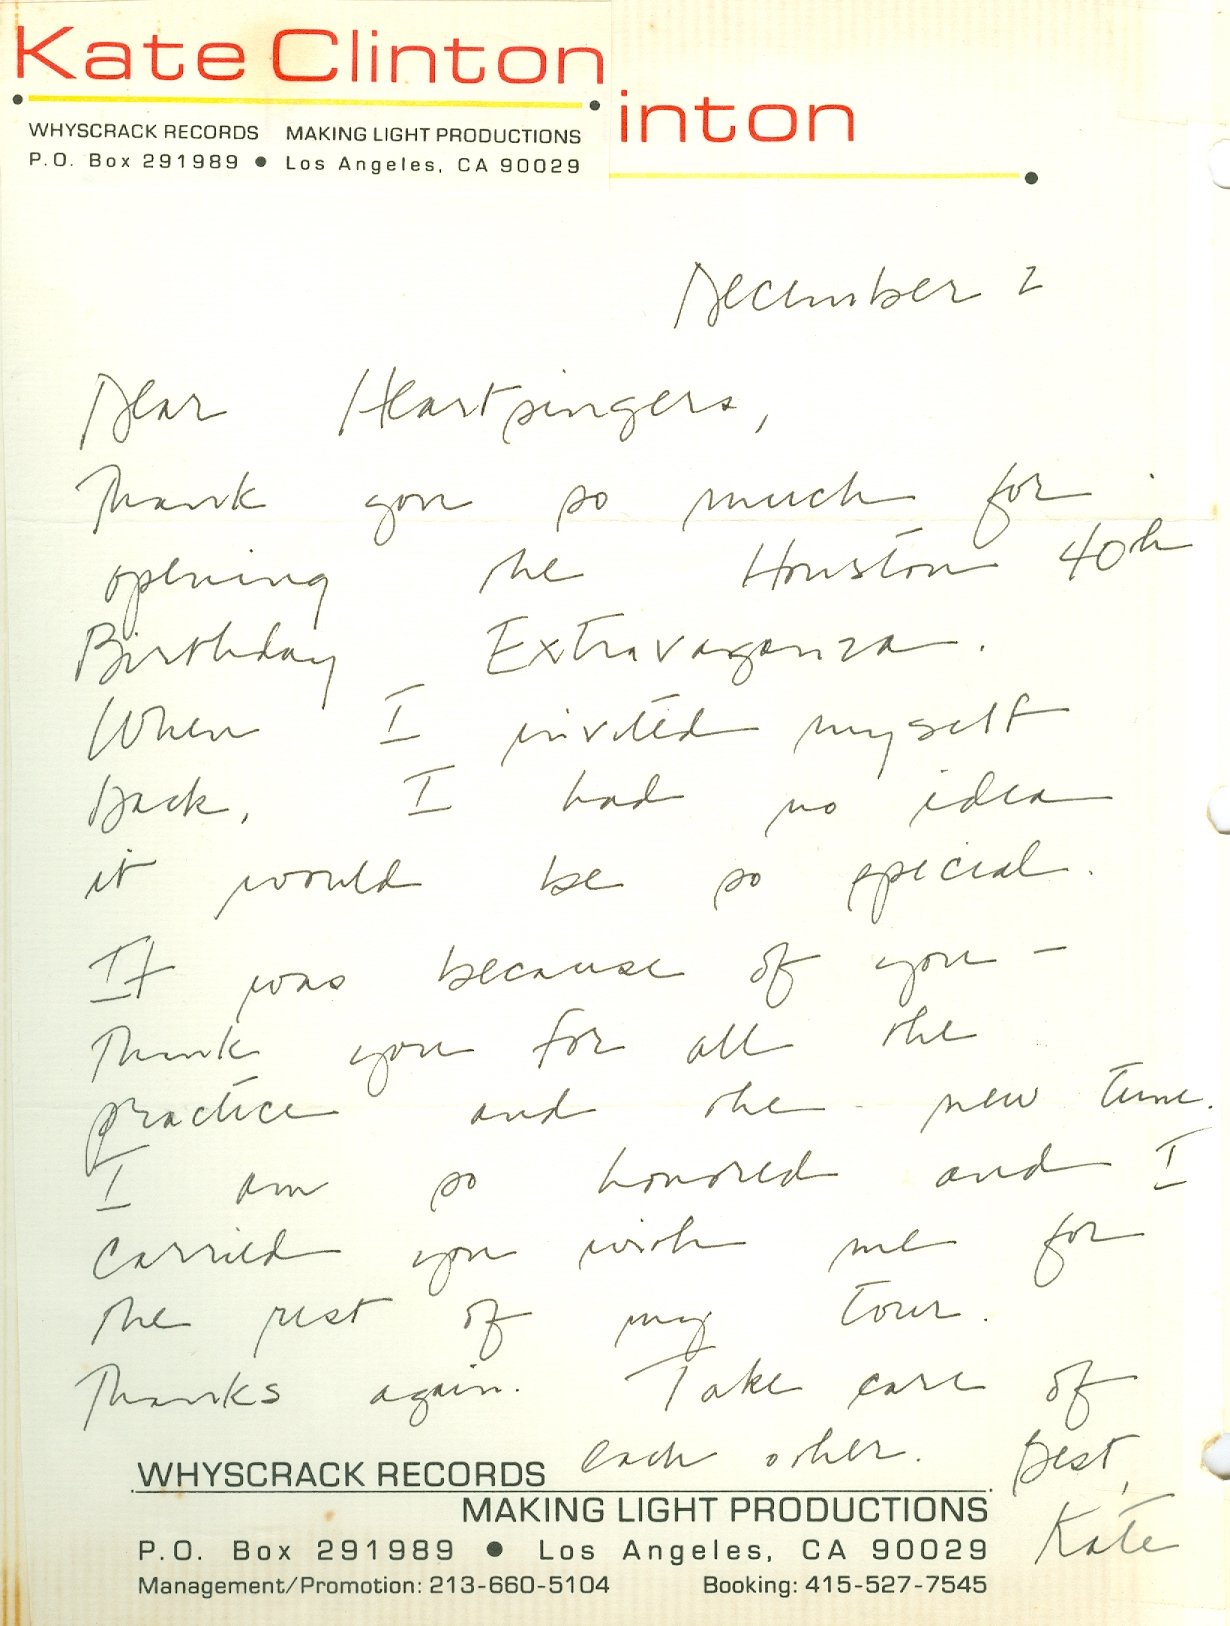 Kate Clinton
WHYSCRACK RECORDS MAKING LIGHT PRODUCTIONS
P.O. Box 291989 ● Los Angeles, CA 90029
inton
December 2
Dear Heartsingers,
Thank you so much for
opening the Houston 40th
Birthday Extravaganza.
When I invited myself
back, I had no idea
it would be so special.
It was because of you –
Thank you for all the
practice and the new tune.
I am so honored and I
carried you with me for
the rest of my tour.
Thanks again. Take care of
each other. Best,
Kate
WHYSCRACK RECORDS
MAKING LIGHT PRODUCTIONS
P.O. Box 291989 ● Los Angeles, CA 90029
Management/Promotion: 213-660-5104 Booking: 415-527-7545